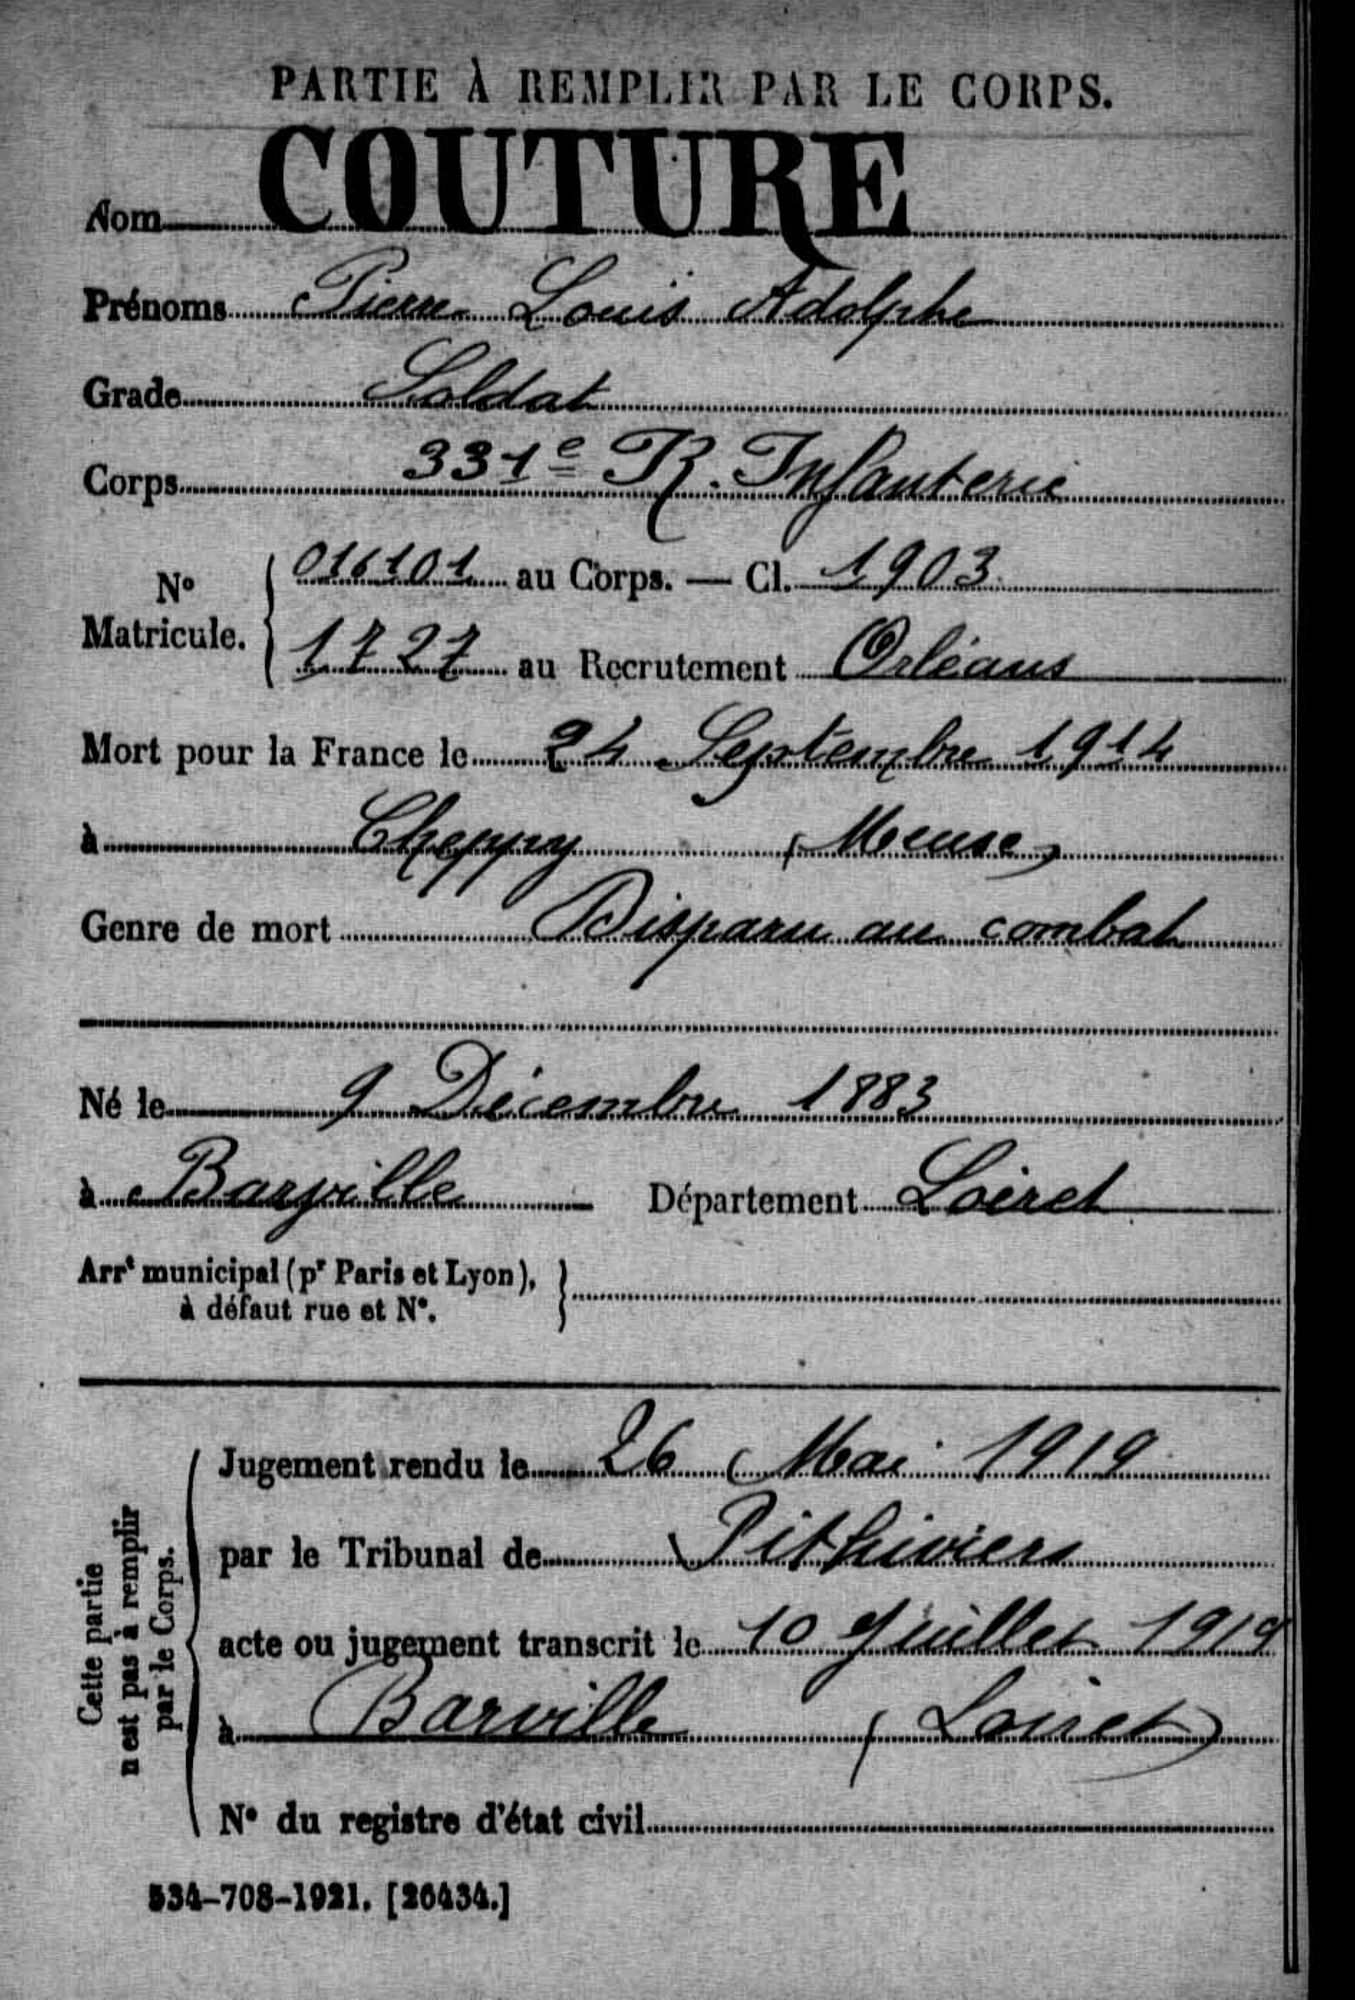 PARTIE À REMPLIR PAR LE CORPS.
Nom COUTURE
Prénoms Pierre Louis Adolphe
Grade Soldat
Corps 331e R. Infanterie
N° Matricule. { 016101 au Corps. — Cl. 1903
1727 au Recrutement Orléans
Mort pour la France le 24 Septembre 1914
à Cheppy (Meuse)
Genre de mort Disparu au combat
Né le 9 Décembre 1883
à Barville Département Loiret
Arrt municipal (pr Paris et Lyon), }
à défaut rue et N°.
Cette partie
n'est pas à remplir
par le Corps.
Jugement rendu le 26 Mai 1919
par le Tribunal de Pithiviers
acte ou jugement transcrit le 10 Juillet 1919
à Barville (Loiret)
N° du registre d'état civil
534-708-1921. [26434.]